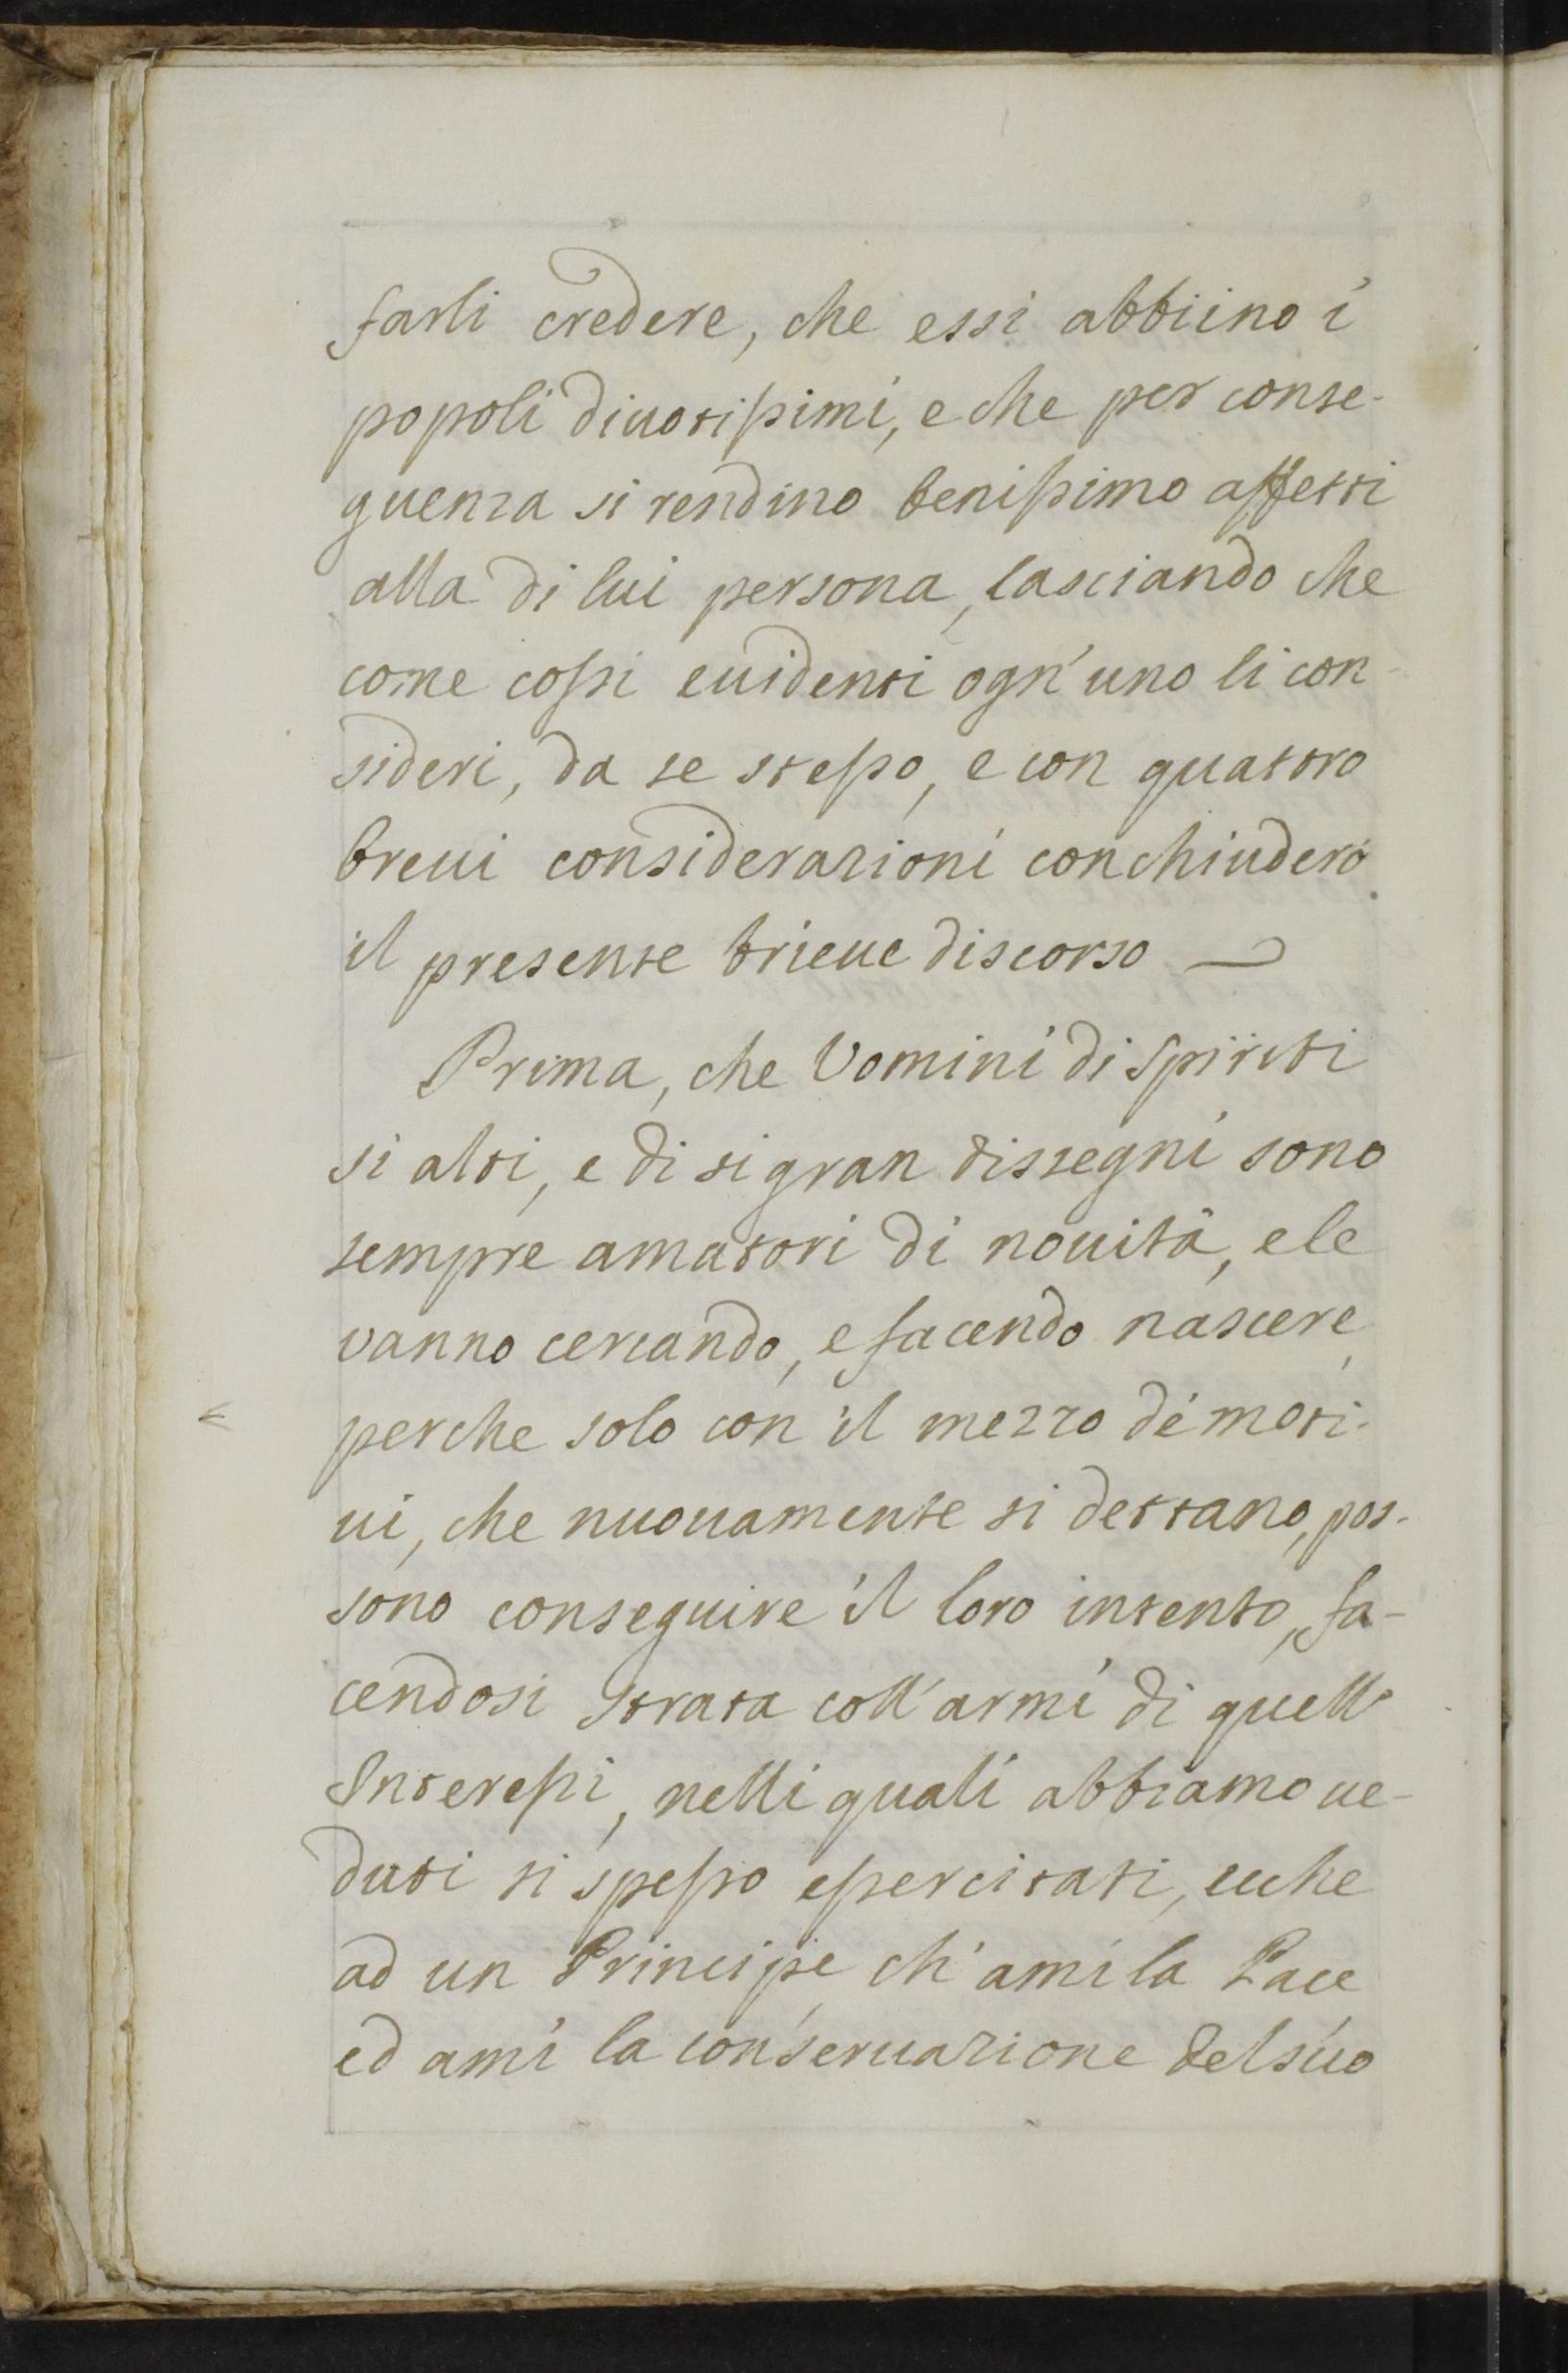 farli credere, che essi abbiino i
popoli diuotissimi, e che per conse-
guenza si rendino benissimo affetti
alla di lui persona, lasciando che
come cossi euidenti ogn'uno li con-
sideri, da se stesso, e con quattro
breui considerazioni conchiuderò
il presente brieue discorso
Prima, che Vomini di spiriti
si alti, e di si gran dissegni sono
sempre amatori di nouità, e le
vanno cercando, e facendo nascere,
perche solo con il mezzo dé moti-
ui, che nuouamente si dettano, pos-
sono conseguire il loro intento, fa-
cendosi strata coll'armi di quelli
Interessi, nelli quali abbiamo ue-
duti si spesso essercitati, e che
ad un Principe ch'ami la Pace
ed ami la conseruazione del suo